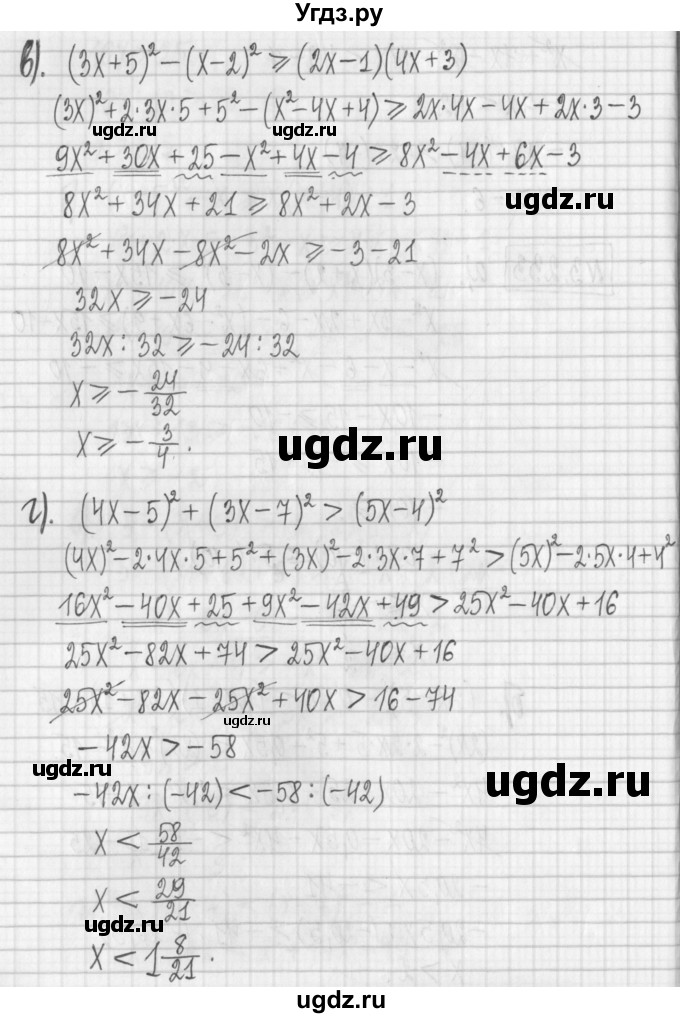 Угдз.ру
в). (3x+5)² − (x−2)² ⩾ (2x−1)(4x+3)
(3x)² + 2·3x·5 + 5² − (x² − 4x + 4) ⩾ 2x·4x − 4x + 2x·3 − 3
ugdz.ru ugdz.ru
9x² + 30x + 25 − x² + 4x − 4 ⩾ 8x² − 4x + 6x − 3
ugdz.ru
8x² + 34x + 21 ⩾ 8x² + 2x − 3
8x² + 34x − 8x² − 2x ⩾ −3 − 21
32x ⩾ −24
32x : 32 ⩾ −24 : 32
x ⩾ −24/32
x ⩾ −3/4.
ugdz.ru
г). (4x−5)² + (3x−7)² > (5x−4)²
(4x)² − 2·4x·5 + 5² + (3x)² − 2·3x·7 + 7² > (5x)² − 2·5x·4 + 4²
ugdz.ru
16x² − 40x + 25 + 9x² − 42x + 49 > 25x² − 40x + 16
25x² − 82x + 74 > 25x² − 40x + 16
25x² − 82x − 25x² + 40x > 16 − 74
ugdz.ru
−42x > −58
ugdz.ru
ugdz.ru
−42x : (−42) < −58 : (−42)
x < 58/42
x < 29/21
x < 1 8/21.
ugdz.ru